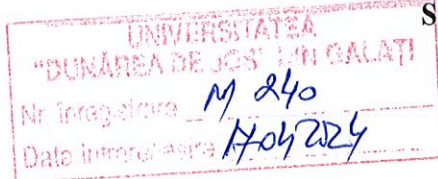 S
UNIVERSITATEA
"DUNĂREA DE JOS" DIN GALAȚI
Nr. înregistrare M 240
Data 17042024